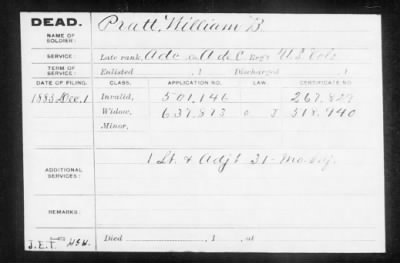 DEAD. Pratt, William B.
NAME OF SOLDIER:
SERVICE: Late rank, Adc & A de C Reg't U.S. Vols
TERM OF SERVICE: Enlisted , 1 Discharged , 1
DATE OF FILING. CLASS. APPLICATION NO. LAW. CERTIFICATE NO.
1885 Dec. 1 Invalid, 501,146 267,829
Widow, 637,873 318,940
Minor,
ADDITIONAL SERVICES: 1 Lt. & Adjt 31- Mo. Inf.
REMARKS:
Died , 1 , at
J.E.T.